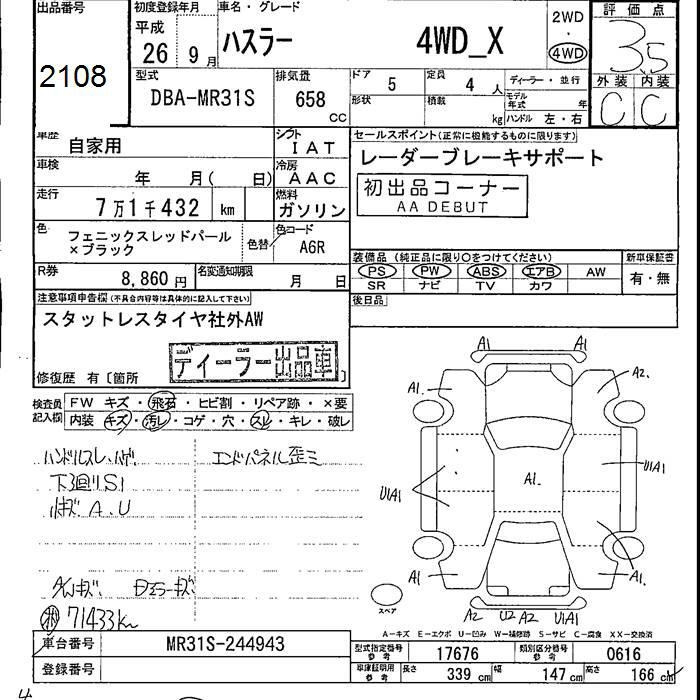 出品番号
2108
初度登録年月
平成
26 年 9 月
車名・グレード
ハスラー 4WD_X
2WD
・
4WD
評価点
3.5
外装 内装
C C
型式
DBA-MR31S
排気量
658 CC
ドア 5
定員 4 人
形状
積載 kg
ディーラー・並行
モデル年式 年
ハンドル 左・右
車歴 自家用
シフト IAT
車検 年 月( 日)
冷房 AAC
走行 7万1千432 km
燃料 ガソリン
色 フェニックスレッドパール
×ブラック
色替
色コード A6R
R券 8,860 円
名変通知期限 月 日
セールスポイント(正常に機能するものに限ります)
レーダーブレーキサポート
初出品コーナー
AA DEBUT
装備品 (純正品に限り○をつけてください)
新車保証書
PS PW ABS エアB AW
有・無
SR ナビ TV カワ
後日品
注意事項申告欄(不具合内容等は具体的に記入して下さい)
スタットレスタイヤ社外AW
ディーラー出品車
修復歴 有〔箇所 〕
検査員記入欄
FW キズ・飛石・ヒビ割・リペア跡・×要
内装 キズ・汚レ・コゲ・穴・スレ・キレ・破レ
ハンドルスレ、ハゲ エンドパネル歪ミ
下廻りS1
ルキズ A、U
A/Wキズ Dミラーキズ
71433km
A1 A1
A1. A2.
U1A1 A1. U1A1
A1 A1.
スペア
A2 U2 A2 U1A1
A-キズ E-エクボ U-凹み W-補修跡 S-サビ C-腐食 XX-交換済
車台番号 MR31S-244943
登録番号
型式指定番号 参考 17676
類別区分番号 参考 0616
車庫証明用 参考 長さ 339 cm 幅 147 cm 高さ 166 cm